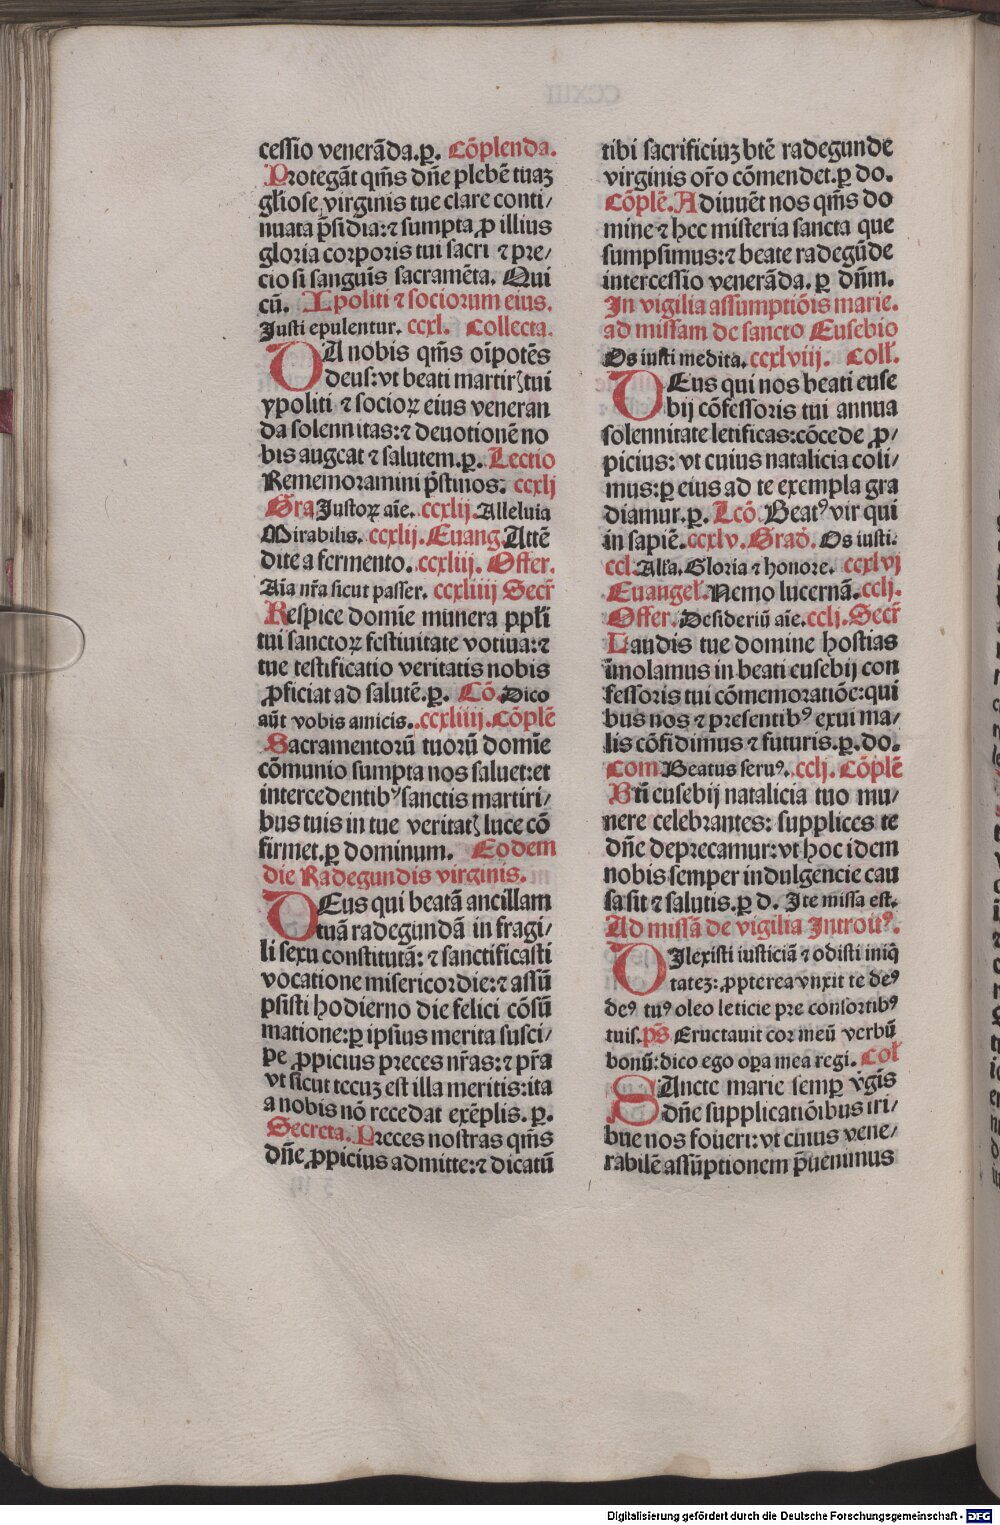 cessio venerãda.ꝑ. Cõplenda.
Protegãt qm̃s dñe plebẽ tuaꝫ
gl̃iose virginis tue clare conti/
nuata p̃sidia:⁊ sumpta ꝓ illius
gloria corporis tui sacri ⁊ pre/
ciosi sanguĩs sacramẽta. Qui
cũ. Ipoliti ⁊ sociorum eius.
Justi epulentur. ccxl. Collecta.
DA nobis qm̃s oĩpotẽs
deus:vt beati martirꝭ tui
ypoliti ⁊ socioꝝ eius veneran
da solennitas:⁊ deuotionẽ no
bis augeat ⁊ salutem.ꝑ. Lectio
Rememoramini p̃stinos. ccxlj
Gra Justoꝝ aĩe. ccxlij. Alleluia
Mirabilis. ccxlij. Euang. Attẽ
dite a fermento. ccxliij. Offer.
Aĩa nr̃a sicut passer. ccxliiij Secr̃
Respice domĩe munera ppl̃i
tui sanctoꝝ festiuitate votiua:⁊
tue testificatio veritatis nobis
ꝓficiat ad salutẽ.ꝑ. Cõ. Dico
aũt vobis amicis. ccxliiij. Cõplẽ
Sacramentorũ tuorũ domĩe
cõmunio sumpta nos saluet:et
intercedentibꝰ sanctis martiri/
bus tuis in tue veritatꝭ luce cõ
firmet.ꝑ dominum. Eodem
die Radegundis virginis.
DEus qui beatã ancillam
tuã radegundã in fragi/
li sexu constitutã: ⁊ sanctificasti
vocatione misericordie:⁊ assũ
psisti hodierno die felici cõsũ
matione:ꝑ ipsius merita susci/
pe ꝓpicius preces nr̃as:⁊ p̃ra
vt sicut tecuꝫ est illa meritis:ita
a nobis nõ recedat exẽplis. ꝑ.
Secreta. Preces nostras qm̃s
dñe ꝓpicius admitte:⁊ dicatũ
tibi sacrificiuꝫ btẽ radegunde
virginis or̃o cõmendet.ꝑ do.
Cõplẽ. Adiuuẽt nos qm̃s do
mine ⁊ hec misteria sancta que
sumpsimus:⁊ beate radegũde
intercessio venerãda. ꝑ dñm.
In vigilia assumptiõis marie.
ad missam de sancto Eusebio
Os iusti medita. ccxlviij. Coll̃.
DEus qui nos beati euse
bij cõfessoris tui annua
solennitate letificas:cõcede ꝓ/
picius: vt cuius natalicia coli/
mus:ꝑ eius ad te exempla gra
diamur.ꝑ. Lcõ. Beatꝰ vir qui
in sapiẽ. ccxlv. Grad̃. Os iusti.
ccl. Alla. Gloria ⁊ honore. ccxlvj
Euangel̃. Nemo lucernã. cclj.
Offer. Desideriũ aĩe. cclj. Secr̃
Laudis tue domine hostias
ĩmolamus in beati eusebij con
fessoris tui cõmemoratiõe:qui
bus nos ⁊ presentibꝰ exui ma/
lis cõfidimus ⁊ futuris.ꝑ. do.
Com Beatus seruꝰ. cclj. Cõplẽ
Bti eusebij natalicia tuo mu/
nere celebrantes: supplices te
dñe deprecamur:vt hoc idem
nobis semper indulgencie cau
sa sit ⁊ salutis.ꝑ d. Ite missa est.
Ad missã de vigilia Introitꝰ.
DIlexisti iusticiã ⁊ odisti iniq̃
tateꝫ: ꝓpterea vnxit te deꝰ
deꝰ tuꝰ oleo leticie pre consortibꝰ
tuis. ps̃ Eructauit cor meũ verbũ
bonũ:dico ego oꝑa mea regi. Col̃
SAncte marie semꝑ v̾gĩs
dñe supplicatiõibus tri/
bue nos foueri:vt cuius vene/
rabilẽ assũptionem p̃uenimus
Digitalisierung gefördert durch die Deutsche Forschungsgemeinschaft - DFG